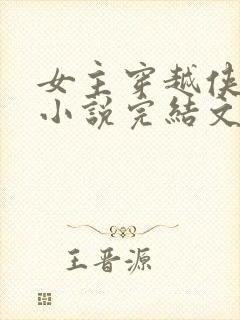 女主穿越侠
小說完結文
王晋源